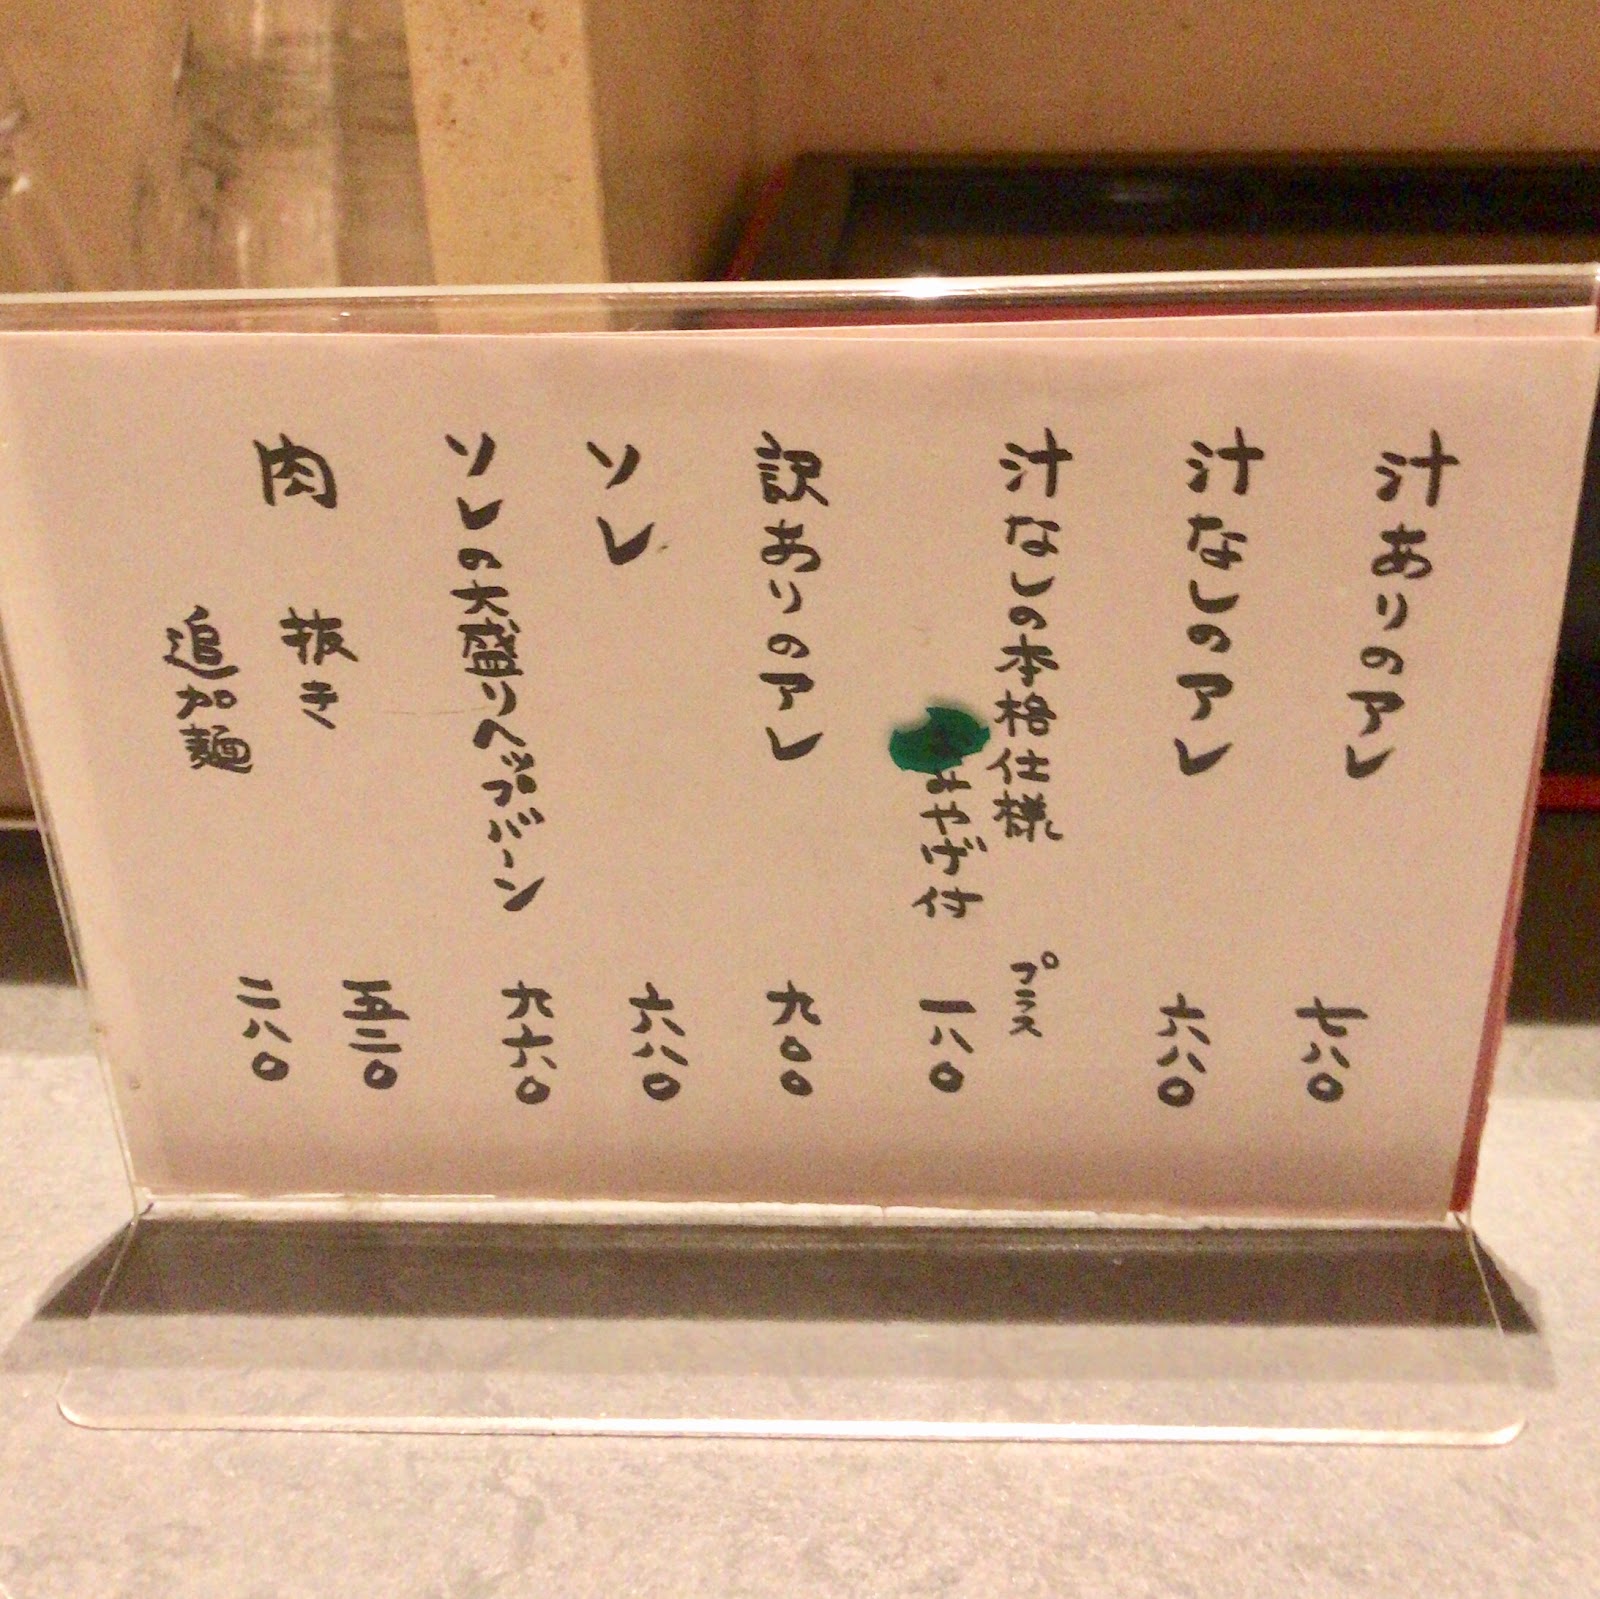 汁ありのアレ 七八〇
汁なしのアレ 六八〇
汁なしの本格仕様 プラス
みやげ付 一八〇
訳ありのアレ 九〇〇
ソレ 六八〇
ソレの大盛りヘップバーン 九六〇
肉抜き 五三〇
追加麺 二八〇